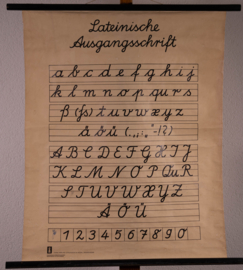 Lateinische
Ausgangsschrift
a b c d e f g h i j
k l m n o p qu r s
ß (ſs) t u v w x y z
ä ö ü (.,„;"-!?)
A B C D E F G H I J
K L M N O P Qu R
S T U V W X Y Z
Ä Ö Ü
1 2 3 4 5 6 7 8 9 0